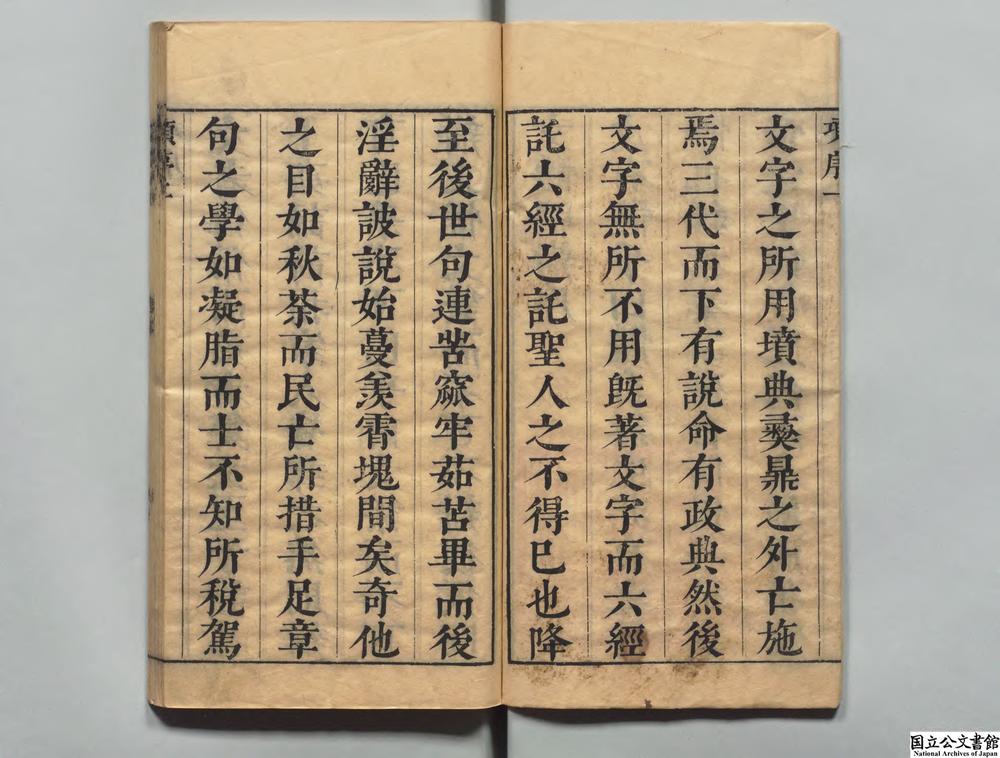 文字之所用墳典彝鼎之外亡施
焉三代而下有說命有政典然後
文字無所不用既著文字而六經
託六經之託聖人之不得已也降
至後世句連呰窳牢茹苦畢而後
淫辭詖說始蔓羨霄塊間矣奇他
之目如秋荼而民亡所措手足章
句之學如凝脂而士不知所稅駕
国立公文書館
National Archives of Japan